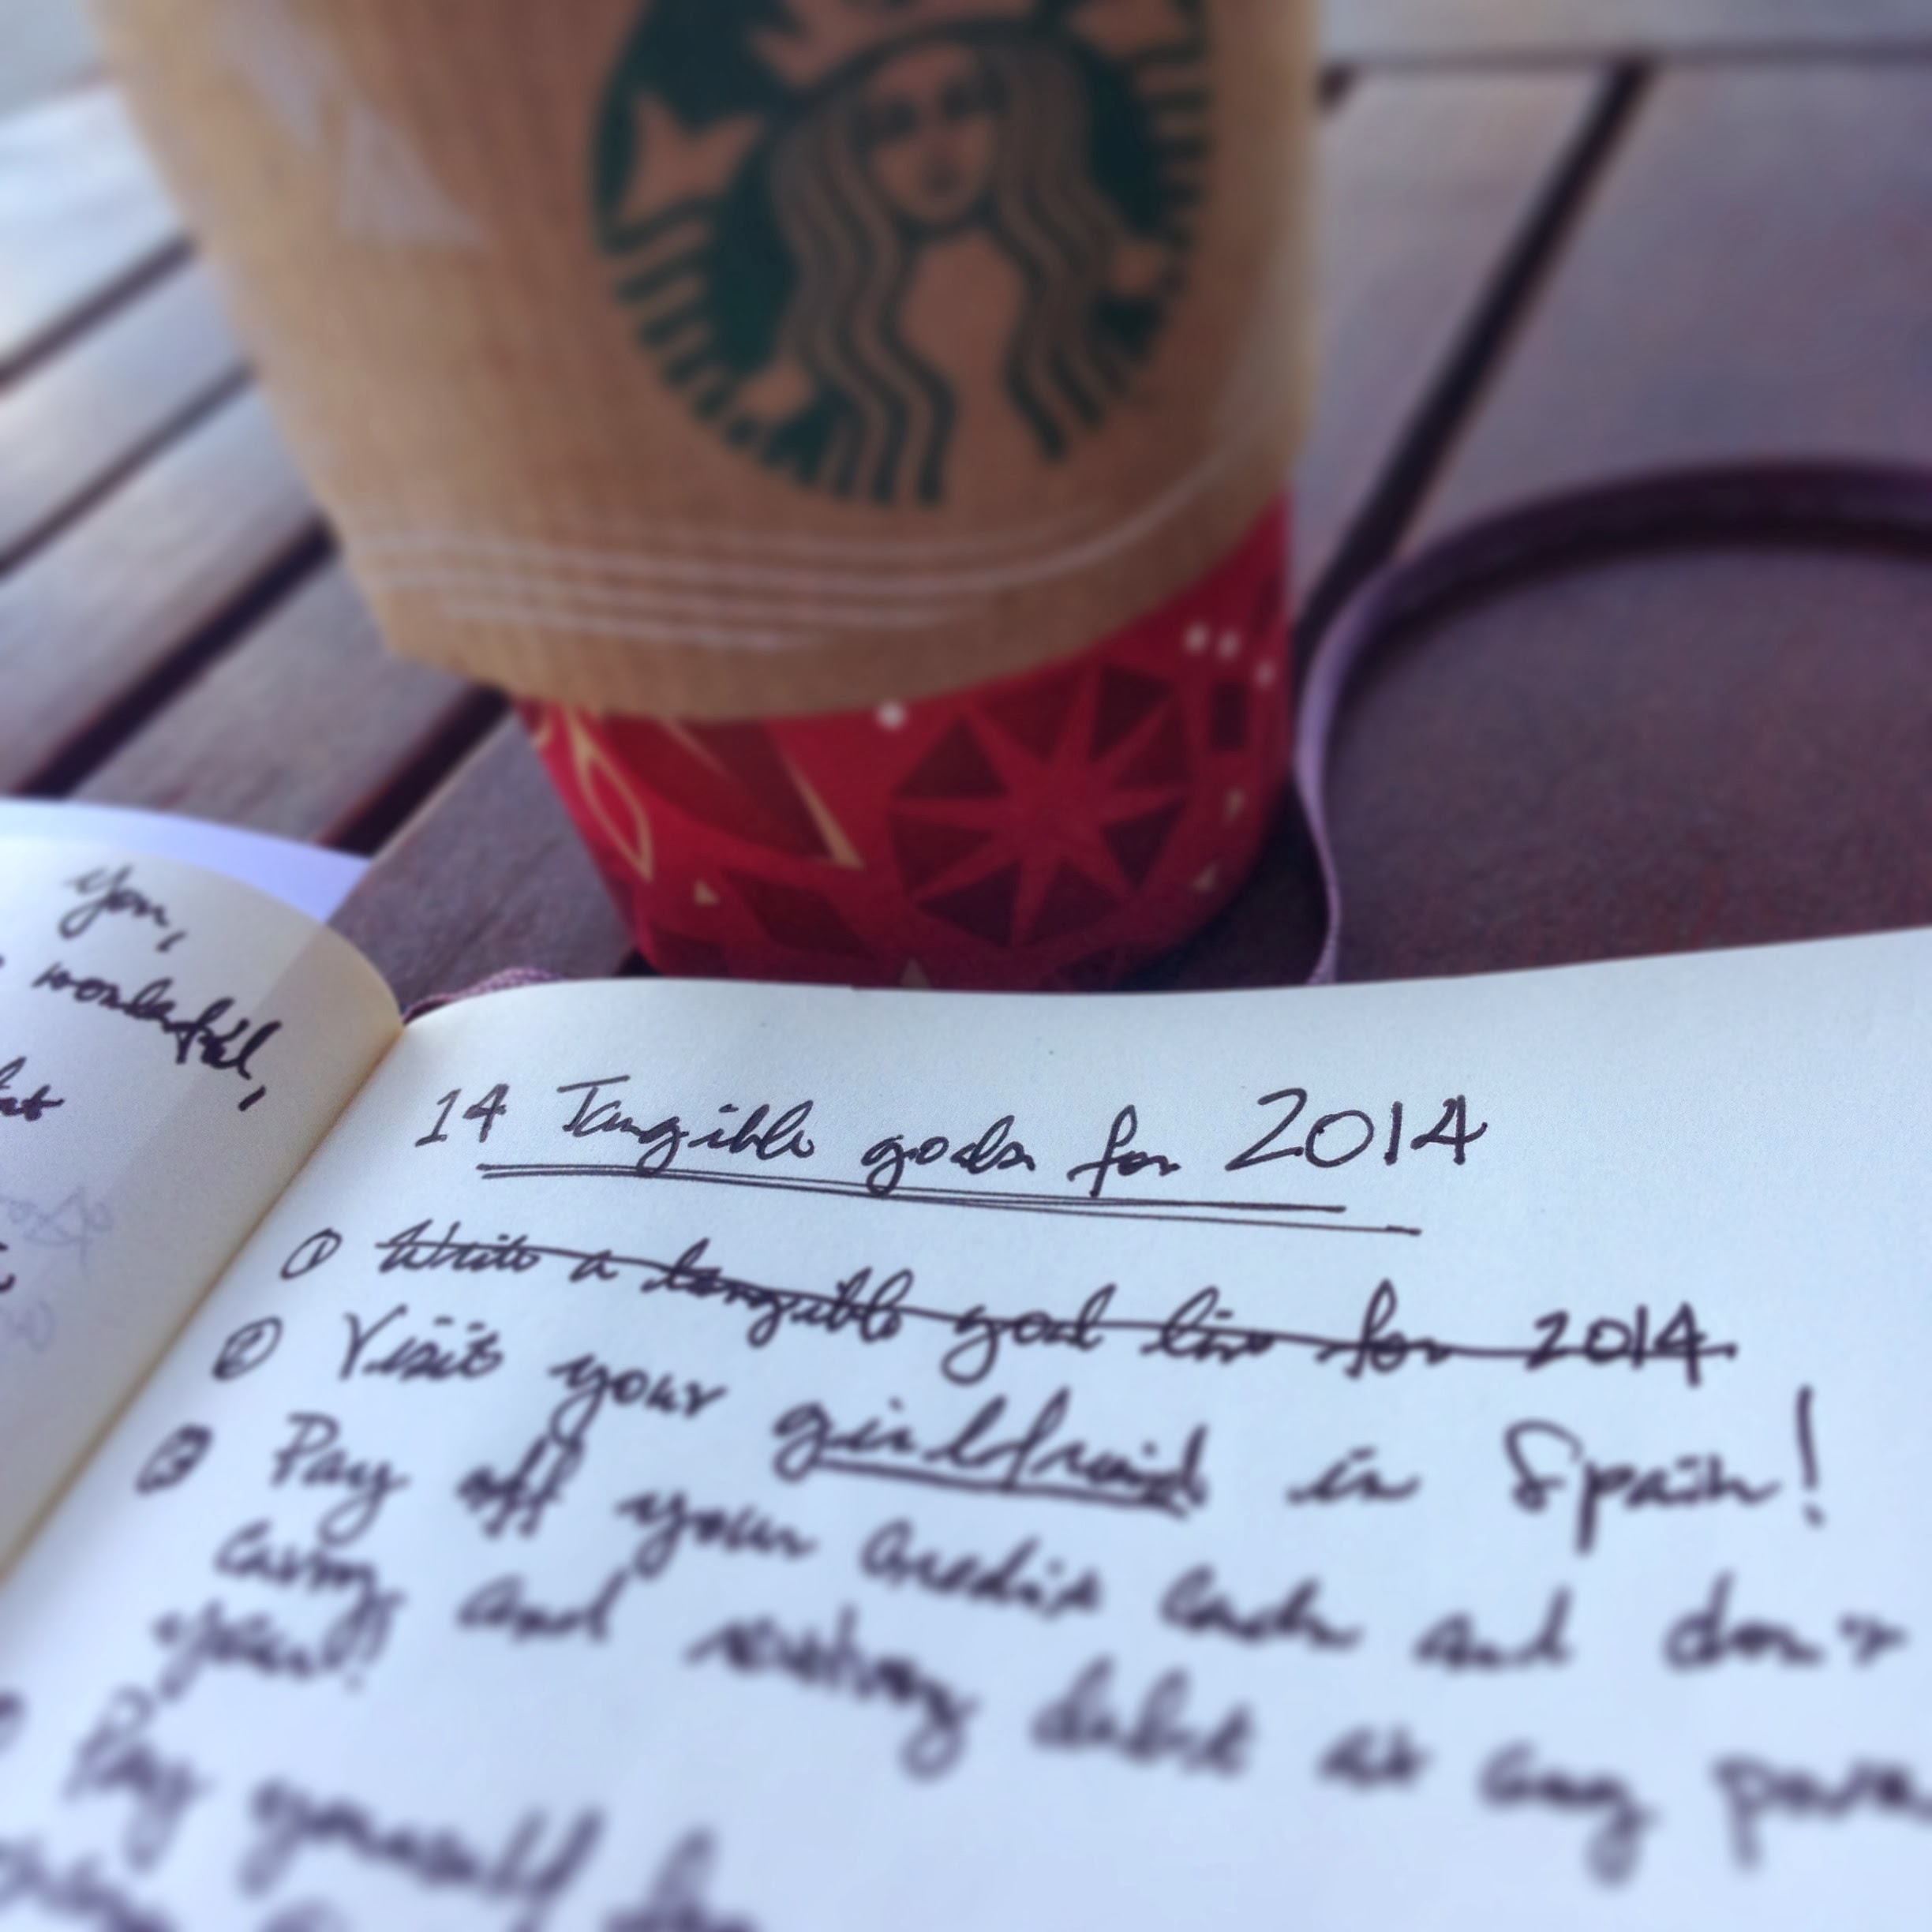 you,
wonderful,
14 Tangible goals for 2014
① Write a tangible goal list for 2014.
② Visit your girlfriend in Spain!
③ Pay off your credit cards and don't
carry and revolving debt at any
year!
Pay yourself